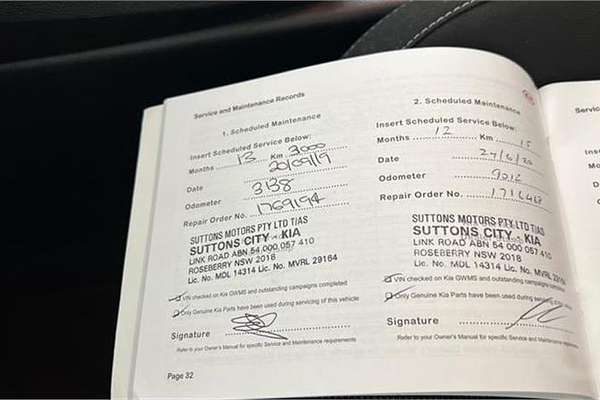 Service and Maintenance Records
1. Scheduled Maintenance
Insert Scheduled Service Below:
Months 13 Km 3,000
Date 20/09/19
Odometer 3138
Repair Order No. 1769194
SUTTONS MOTORS PTY LTD T/AS
SUTTONS CITY KIA
LINK ROAD ABN 54 000 057 410
ROSEBERRY NSW 2018
Lic. No. MDL 14314 Lic. No. MVRL 29164
VIN checked on Kia GWMS and outstanding campaigns completed
Only Genuine Kia Parts have been used during servicing of this vehicle
Signature
Refer to your Owner's Manual for specific Service and Maintenance requirements
Page 32
2. Scheduled Maintenance
Insert Scheduled Service Below:
Months 12 Km 15
Date 24/6/20
Odometer
Repair Order No.
SUTTONS MOTORS PTY LTD T/AS
SUTTONS CITY KIA
LINK ROAD ABN 54 000 057 410
ROSEBERRY NSW 2018
Lic. No. MDL 14314 Lic. No. MVRL
VIN checked on Kia GWMS and outstanding campaigns completed
Only Genuine Kia Parts have been used during servicing
Signature
Refer to your Owner's Manual for specific Service and Maintenance requirements